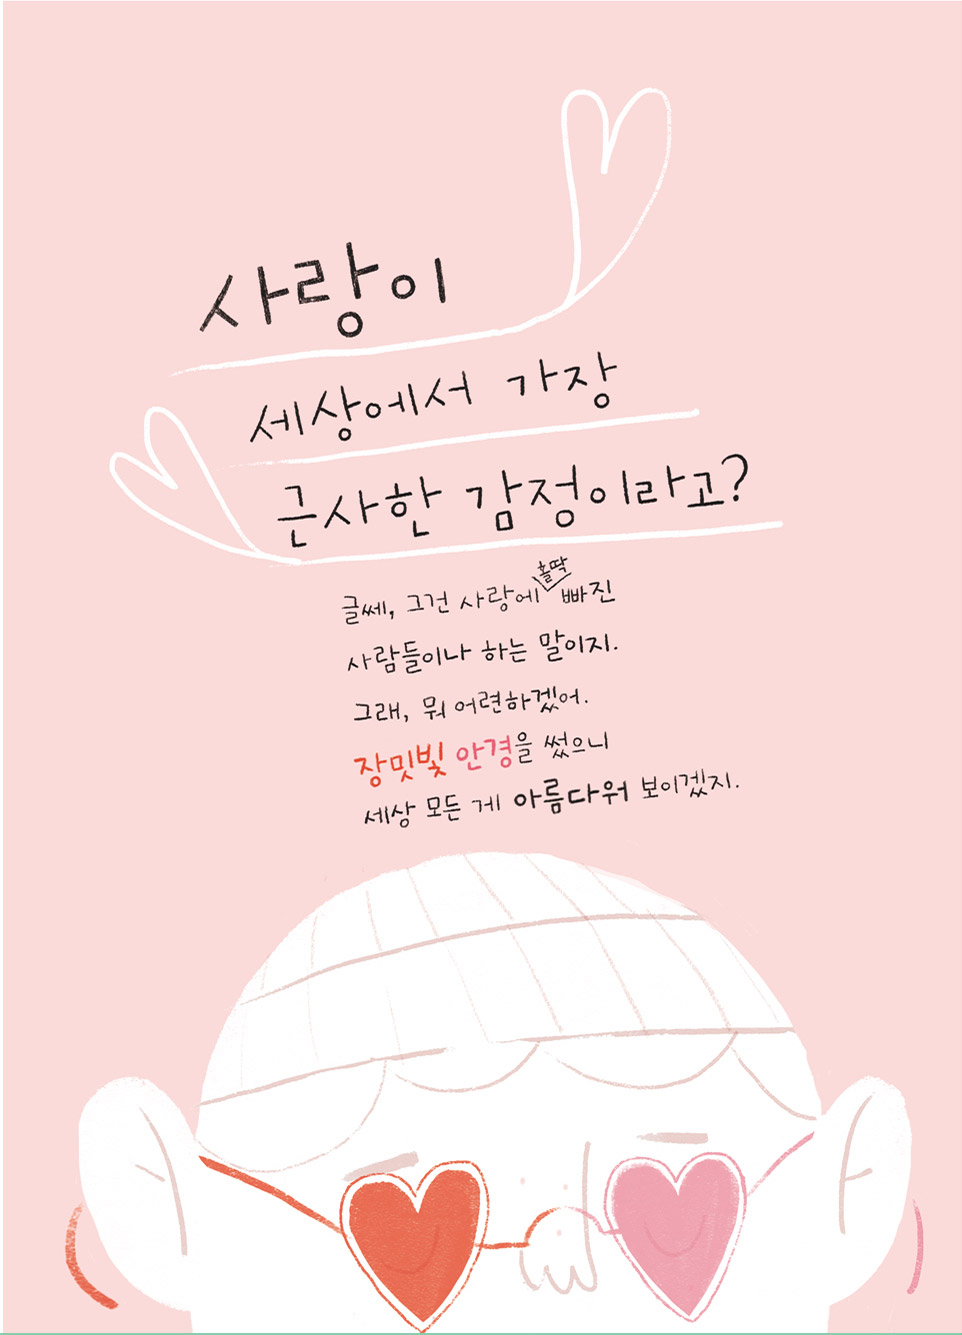 사랑이
세상에서 가장
근사한 감정이라고?
글쎄, 그건 사랑에 홀딱 빠진
사람들이나 하는 말이지.
그래, 뭐 어련하겠어.
장밋빛 안경을 썼으니
세상 모든 게 아름다워 보이겠지.